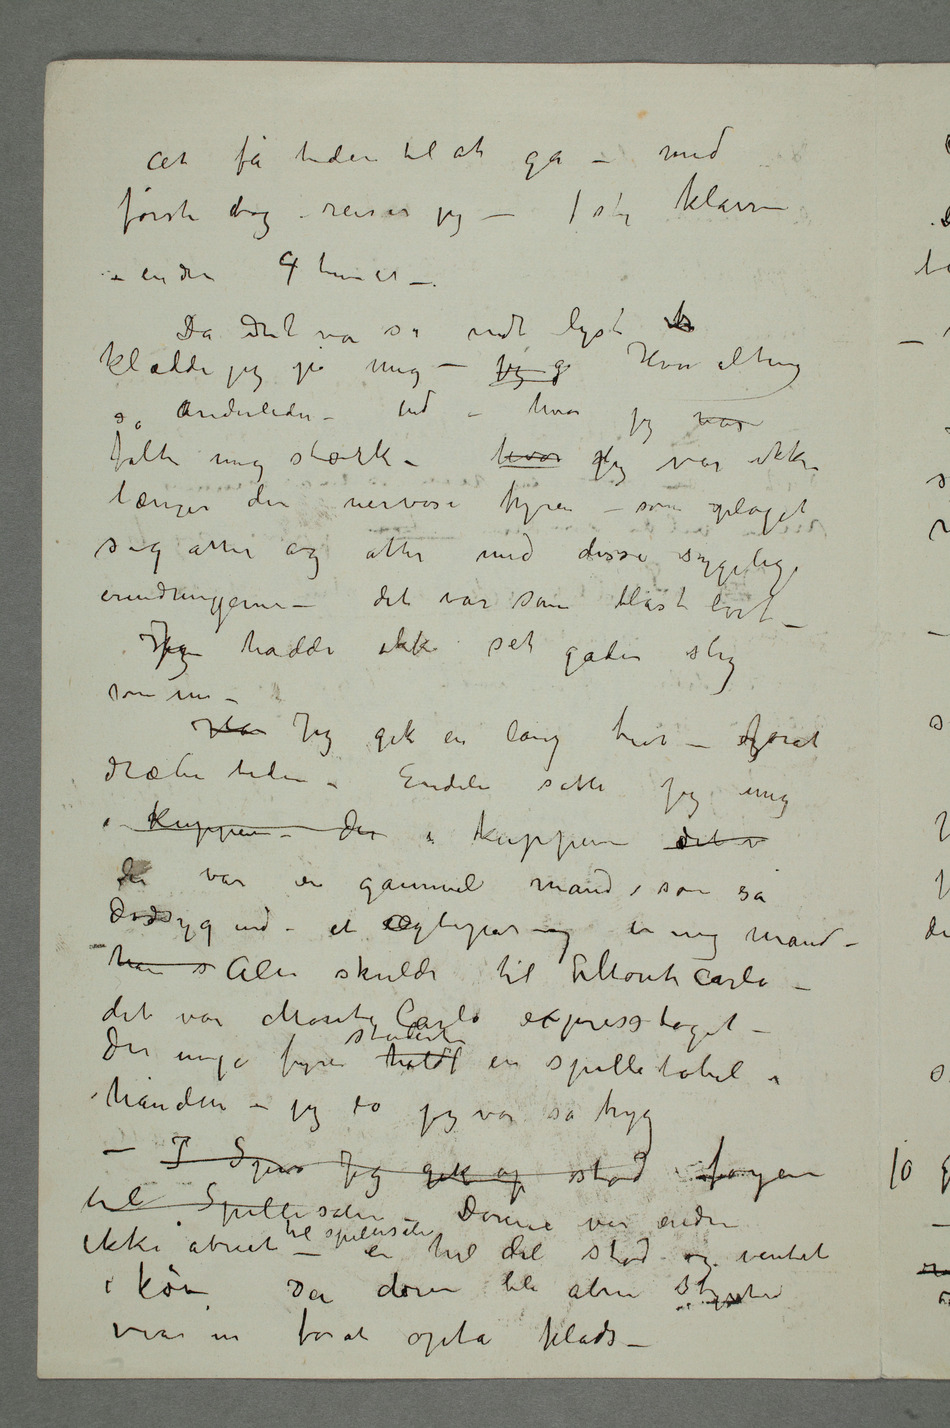 at få tiden til at gå – med
første tog reiser jeg – klassen
– endnu 4 timer –
Da det var så vidt lyst
klædde jeg på mig – jeg g Hvor alting
så anderledes ud – hvor jeg var
følte mig stærk – hvor Jeg var ikke
længer den nervøse fyren – som plaget
sig atter og atter med disse sygelige
erindringerne – det var som blåst bort –
Jeg hadde ikke set gaden slig
som nu –
Jeg gik en lang tur – forat
dræbe tiden – Endeli satte jeg mig
i Kuppen – der i kuppen det v
der var en gammel mand, som så
dødsyg ud – et ægtepar – og en ung mand –
han s Alle skulde til Monte Carlo –
det var Monte Carlo expresstoget –
studerte
Den unge fyren holdt en spilletabel i
hånden – jeg lo jeg var så tryg
– I Jeg gik op stod i foyeren
til Spillesalen – Dørene var endnu
til spillesalen
ikke åbnet – en hel del stod og ventet
i kø – Da døren ble åbnet styrted
vi ind for at opta plads –
10